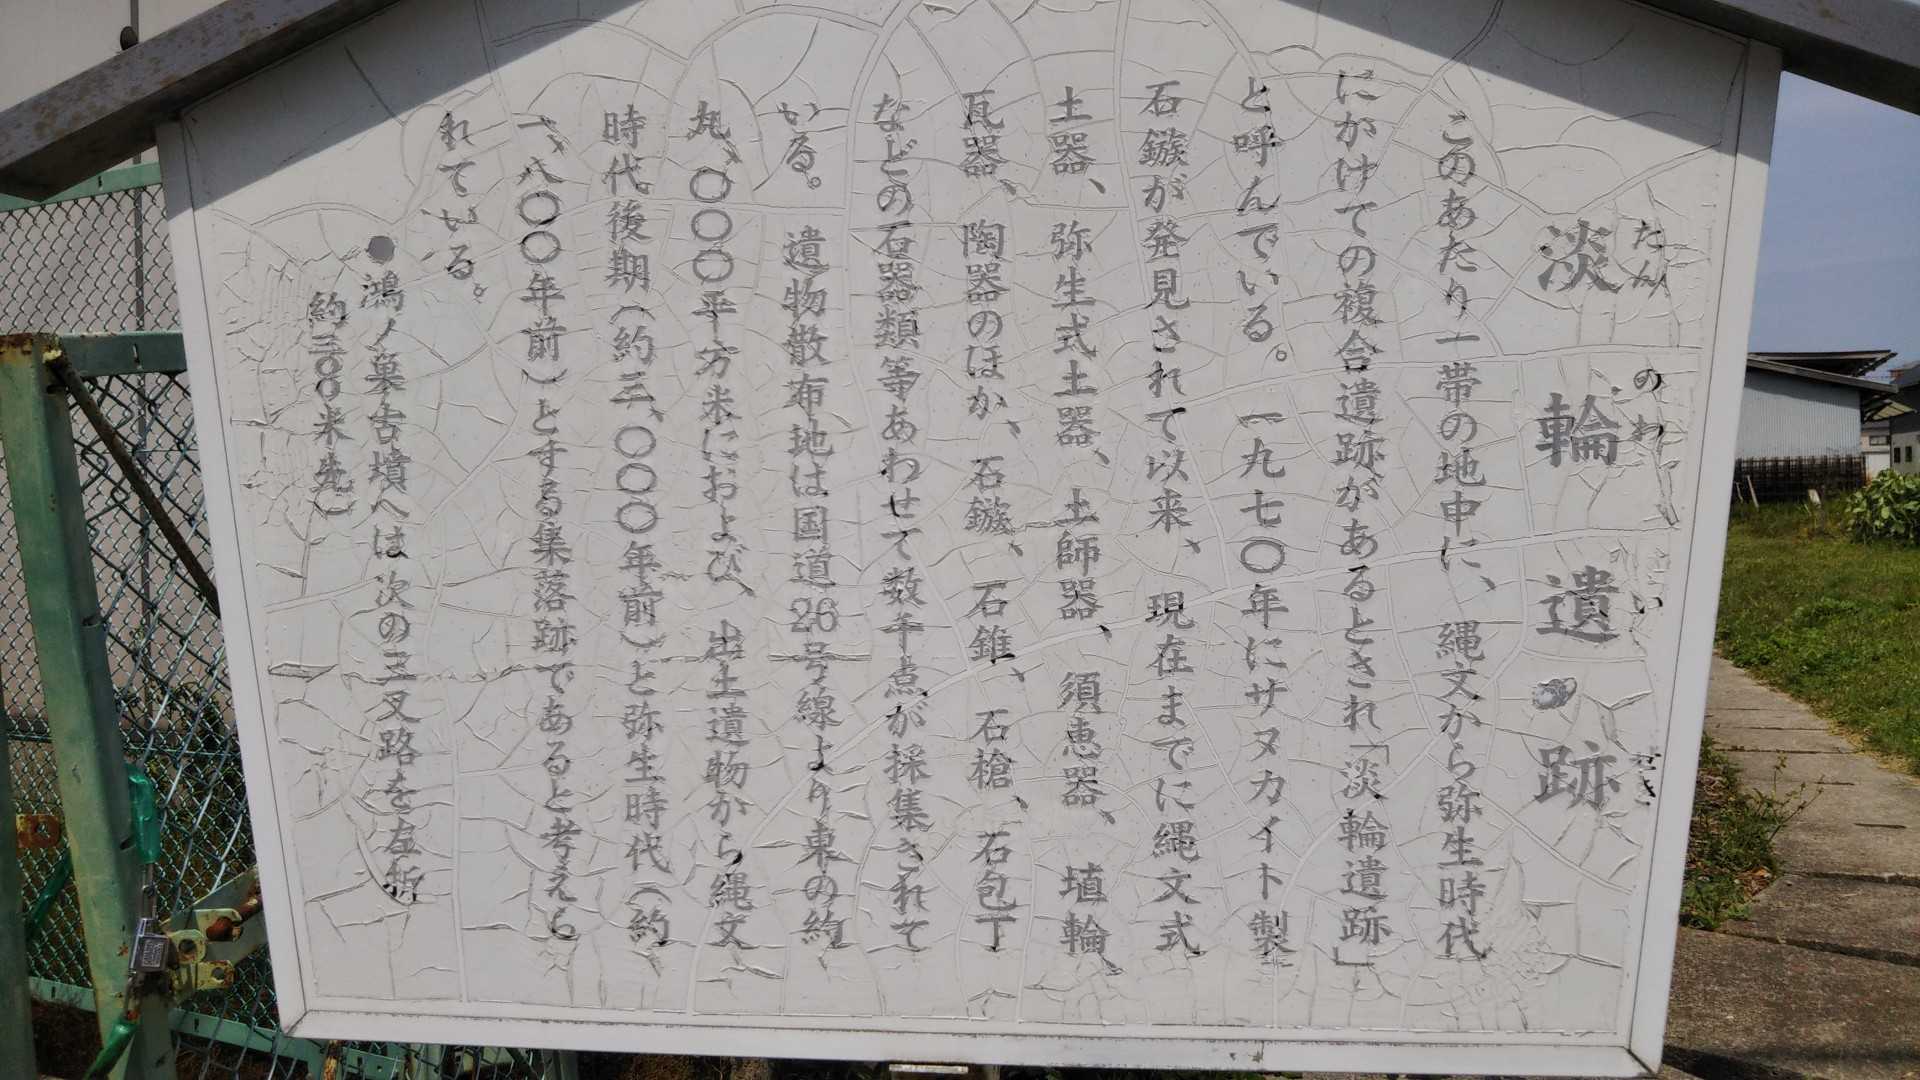 淡輪遺跡
たんのわいせき
このあたり一帯の地中に、縄文から弥生時代
にがけての複合遺跡があるとされ「淡輪遺跡」
と呼んでいる。一九七〇年にサヌカイト製
石鏃が発見されて以来、現在までに縄文式
土器、弥生式土器、土師器、須恵器、埴輪、
瓦器、陶器のほか、石鏃、石錐、石槍、石包丁
などの石器類等あわせて数千点が採集されて
いる。遺物散布地は国道26号線より東の約
九、〇〇〇平方米におよび、出土遺物から縄文
時代後期（約三、〇〇〇年前）と弥生時代（約
一、八〇〇年前）とする集落跡であると考えら
れている。
●鴻ノ巣古墳へは次の三叉路を左折
約三〇〇米先）